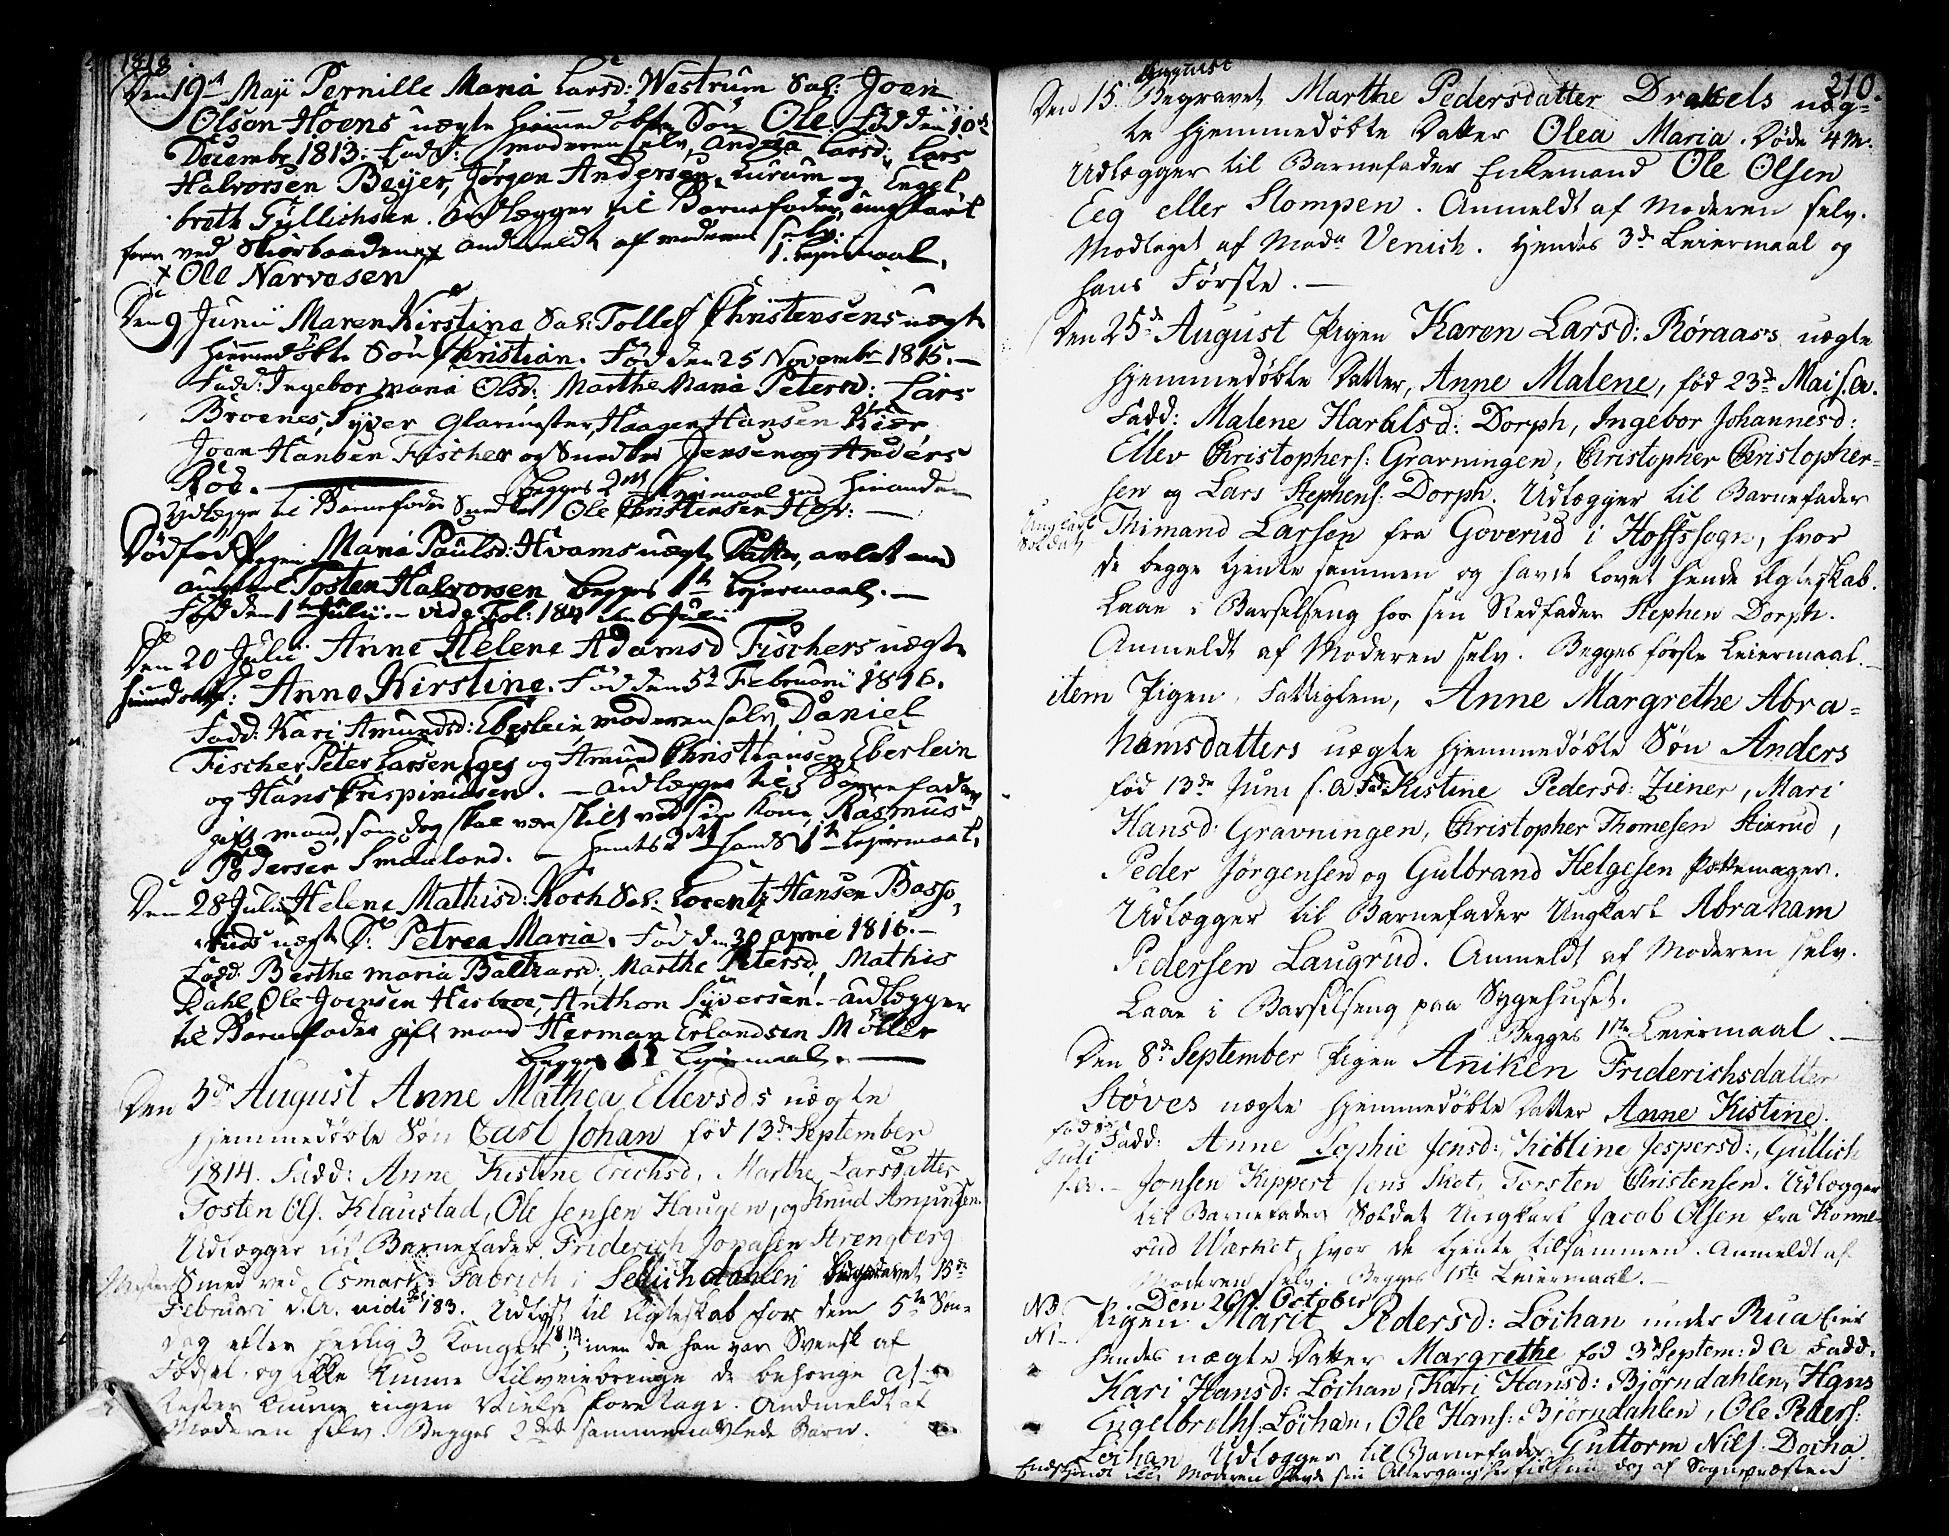 1816
Den 19de Maji Pernille Maria Larsd: Westrum Sal: Joen
Olsen Hoens uægte hiemmedøbte Søn Ole. Fød den 10de
Decembr 1813: Fadd: moderen selv, Andrea Larsd: Lars
Halvorsen Beyer, Jørgen Andersen Lurum og Engel
breth Gullichsen. Udlægger til Barnefader, ungkarl
ved andmeldt af moderen selv.
x Ole Narvesen 1. Leiermaal.
Den 9 Junii Maren Kirstine Sal: Tollef Christensens uægte
hiemmedøbte Søn Christian. Fød den 25 Novembr 1815. —
Fadd: Ingebor Maria Olsd: Marthe Maria Petersd: Lars
Broenes, Syver Glarmester, Haagen Hansen Kier,
Joen Hansen Fischer og Snedker Jensen og Anders
Rød. — begges 2det Leiermaal med hinanden
Udlægger til Barnefader Snedker Ole Christensen Hoff: —
Dødfød Pigen Maria Paulsd: Hvams uægte Datter, avlet med
ungkarl Tosten Halvorsen begges 1te Leiermaal. —
Fød den 1te Julii. — vide Fol: 184 den 6 Julii
Den 20 Julii Anne Helene Adamsd Fischers uægte
hiemmedøbte: Anne Kirstine. Fød den 5te Februarii 1816.
Fadd: Kari Amundsd: Eberlein moderen selv, Daniel
Fischer, Peter Larsen Eges og Amund Christiansen Eberlein
og Hans Crispiniusen. — udlægger til Barnefader
gift mand, som dog skal være skilt ved sin Kone, Rasmus
Pedersen Smaaland. — hendes 2det hans 1te Leiermaal.
Den 28 Julii Helene Mathisd: Koch Sal: Lorentz Hansen Basse
ruds uægte D: Petrea Maria. Fød den 30 April 1816. —
Fadd: Berthe Maria Baltzarsd: Marthe Petersd: Mathis
Dahl, Ole Joensen Herbroe, Anthon Syversen. — udlægger
til Barnefader gift mand Herman Erlandsen Møller
begges Leiermaal. —
Den 3de August Anne Mathea Ellevsds uægte
hjemmedøbte Søn Carl Johan fød 13de September
1814. Fadd: Anne Kistine Erichsd. Marthe Larsdatter
Tosten Ols. Klaustad, Ole Jensen Haugen, og Knud Amundsen.
Udlægger til Barnefader Friderich Jonasen Strengberg
Smed ved Esmarks Fabrich i Sellichdahlen begravet 13de
Februari d.A. vidi 183. Udlyst til Ægteskab for dem 5te Søn-
dag efter hellig 3 Konger 1814; men da han var Svensk af
Fødsel, og ikke kunne tilveiebringe de behørige At-
tester kunne ingen Vielse foretage. Andmeldt af
Moderen selv. Begges 2det sammenavlede Barn.
210.
August
Den 15. Begravet Marthe Pedersdatter Drakels uæg-
te hjemmedøbte Datter Olea Maria. Døde 4 M.
Udlægger til Barnefader Enkemand Ole Olsen
Eeg eller Stompen. Anmeldt af Moderen selv.
Modtaget af Mada Venich. Hendes 3de Leiermaal og
hans Første. —
Den 25de August Pigen Karen Larsd: Røraass uægte
hjemmedøbte Datter, Anne Malene, fød 23de Mai s.A.
Fadd: Malene Haraldsd: Dorph, Ingebor Johannesd:
Ellev Christophers: Gravningen, Christopher Christopher-
sen og Lars Stephens: Dorph. Udlægger til Barnefader
Ungkarl Soldat Thimand Larsen fra Goverud i Hoffssogn, hvor
de begge tjente sammen og havde lovet hende Ægteskab.
Laae i Barselseng hos sin Stedfader Stephen Dorph.
Anmeldt af Moderen selv. Begges første Leiermaal. —
item Pigen, Fattiglem, Anne Margrethe Abra-
hamsdatters uægte hjemmedøbte Søn Anders
fød 13de Juni s.A. Fad: Kistine Pedersd: Ziener, Mari
Hansd: Gravningen, Christopher Thomesen Stixrud,
Peder Jørgensen og Gulbrand Helgesen Pottemager.
Udlægger til Barnefader Ungkarl Abraham
Pedersen Laugrud. Anmeldt af Moderen selv.
Laae i Barselseng paa Sygehuset.
Begges 1ste Leiermaal. —
Den 8de September Pigen Aniken Friderichsdatter
Støves uægte hjemmedøbte Datter Anne Kistine.
fød Juli s.A. — Fadd: Anne Sophie Jensd: Kistine Jespersd:, Gullich
Jonsen Kippert Jens Skot, Torsten Christensen. Udlægger
til Barnefader Soldat Ungkarl Jacob Olsen fra Konne-
rud Værket, hvor de tjente tilsammen. Anmeldt af
Moderen selv. Begges 1ste Leiermaal. —
Den 20de October
Pigen Marit Pedersd: Løchan under Rua
hendes uægte Datter Margrethe fød 3de Septem: d.A. Fadd:
Kari Hansd: Løchan, Kari Hansd: Bjørndahlen, Hans
Engelbreths: Løchan, Ole Hans: Bjørndahlen, Ole Peders:
Løchan Udlægger til Barnefader Guttorm Nils: Docka
Moderen sin dog af Sognepræsten